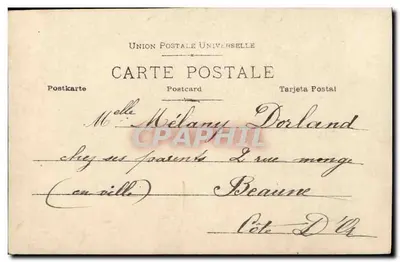 UNION POSTALE UNIVERSELLE
CARTE POSTALE
Postkarte Postcard Tarjeta Postal
Melle Mélany Dorland
CPARAMA
chez ses parents 2 rue monge
(en ville) Beaune
Côte D'Or